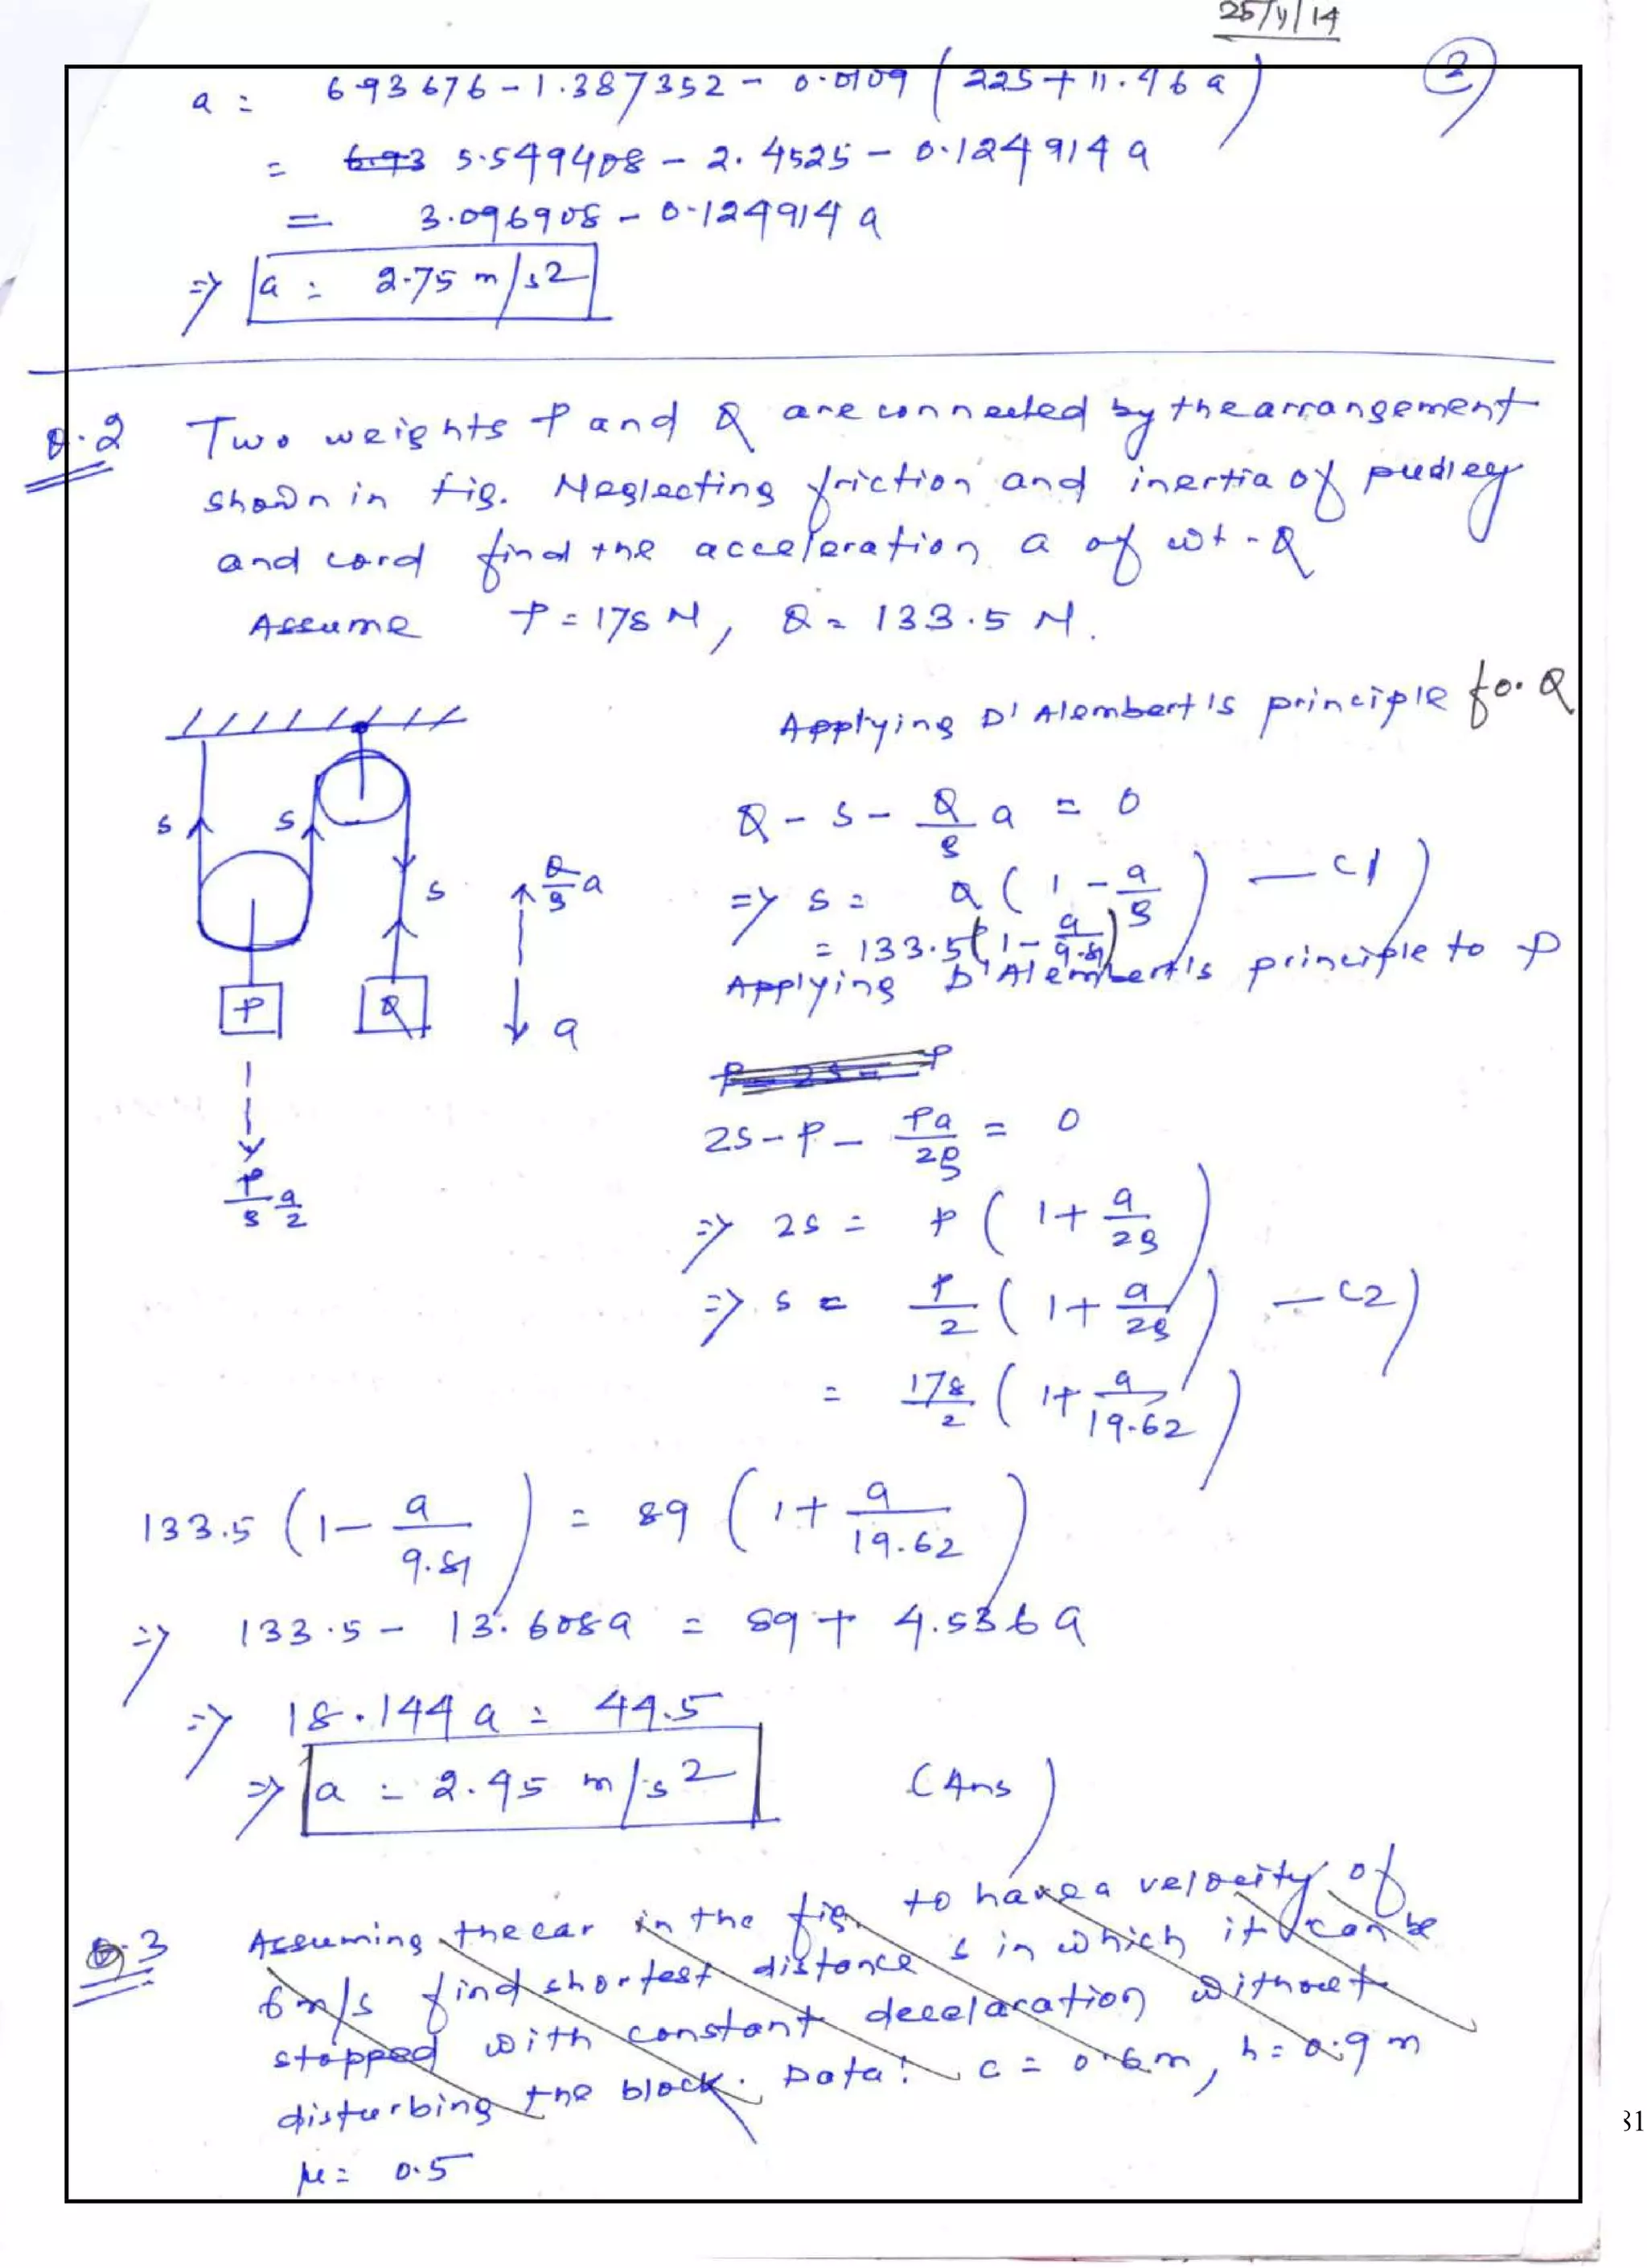 25/4/14
2
a = 6.93676 - 1.387352 - 0.0109 (225 + 11.46 a)
= 5.549408 - 2.4525 - 0.124914 a
= 3.096908 - 0.124914 a
=> a = 2.75 m/s2
Q.2 Two weights P and Q are connected by the arrangement
shown in fig. Neglecting friction and inertia of pulley
and cord find the acceleration a of wt. Q
Assume P = 178 N, Q = 133.5 N.
Applying D'Alembert's principle for Q
Q - S - Q/g a = 0
=> S = Q (1 - a/g) — (1)
= 133.5 (1 - a/9.81)
Applying D'Alembert's principle to P
P - 2S = P
2S - P - Pa/2g = 0
=> 2S = P (1 + a/2g)
=> S = P/2 (1 + a/2g) — (2)
= 178/2 (1 + a/19.62)
S
S
S
Q/g a
P
Q
a
P/g a/2
133.5 (1 - a/9.81) = 89 (1 + a/19.62)
=> 133.5 - 13.608a = 89 + 4.536a
=> 18.144 a = 44.5
=> a = 2.45 m/s2 (Ans)
Q.3 Assuming the car in the fig. to have a velocity of
6 m/s find shortest distance s in which it can be
stopped with constant decelaration without
disturbing the block. Data: c = 0.6m, h = 0.9 m
μ = 0.5
81